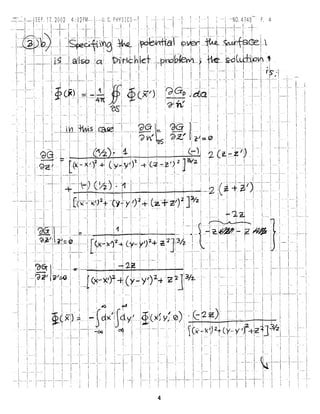 SEP. 17. 2002 4:12PM U C PHYSICS NO. 4743 P. 4
② b) Specifying the potential over the surface
is also a Dirichlet problem, the solution
is:
Φ(x̄) = -1/4π ∯_∂S Φ(x̄') ∂G_D/∂n' · da
in this case ∂G/∂n'|_∂S = ∂G/∂z'|_z'=0
∂G/∂z' = (-½) · 1 / [(x-x')² + (y-y')² + (z-z')²]^3/2 (-) 2 (z-z')
+ (-)(-½) · 1 / [(x-x')² + (y-y')² + (z+z')²]^3/2 2 (z+z')
-2z
∂G/∂z'|_z'=0 = 1 / [(x-x')² + (y-y')² + z²]^3/2 · { -z - z }
∂G/∂z'|_z'=0 = -2z / [(x-x')² + (y-y')² + z²]^3/2
Φ(x̄) = - ∫_-∞^∞ dx' ∫_-∞^∞ dy' Φ(x', y', 0) · (-2z) / [(x-x')² + (y-y')² + z²]^3/2
4